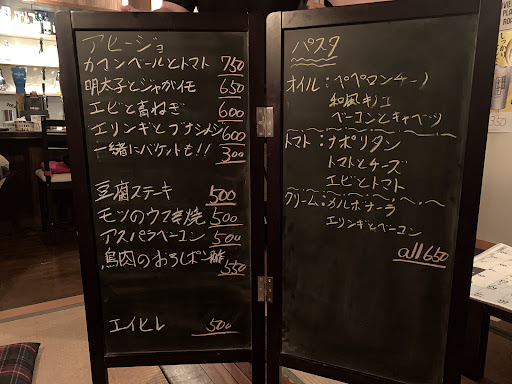 アヒージョ
カマンベールとトマト 750
明太子とジャガイモ 650
エビと長ねぎ 600
エリンギとブナシメジ 600
一緒にバケットも!! 300
豆腐ステーキ 500
モツのウマ辛焼 500
アスパラベーコン 500
鳥肉のおろしポン酢 550
エイヒレ 500
パスタ
オイル:ペペロンチーノ
和風キノコ
ベーコンとキャベツ
トマト:ナポリタン
トマトとチーズ
エビとトマト
クリーム:カルボナーラ
エリンギとベーコン
all 650